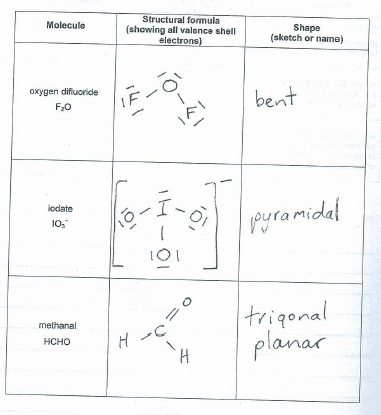 Molecule
Structural formula
(showing all valence shell
electrons)
Shape
(sketch or name)
oxygen difluoride
F₂O
O
F
F
bent
iodate
IO₃⁻
O - I - O
|
O
−
pyramidal
methanal
HCHO
O
H
C
H
trigonal
planar